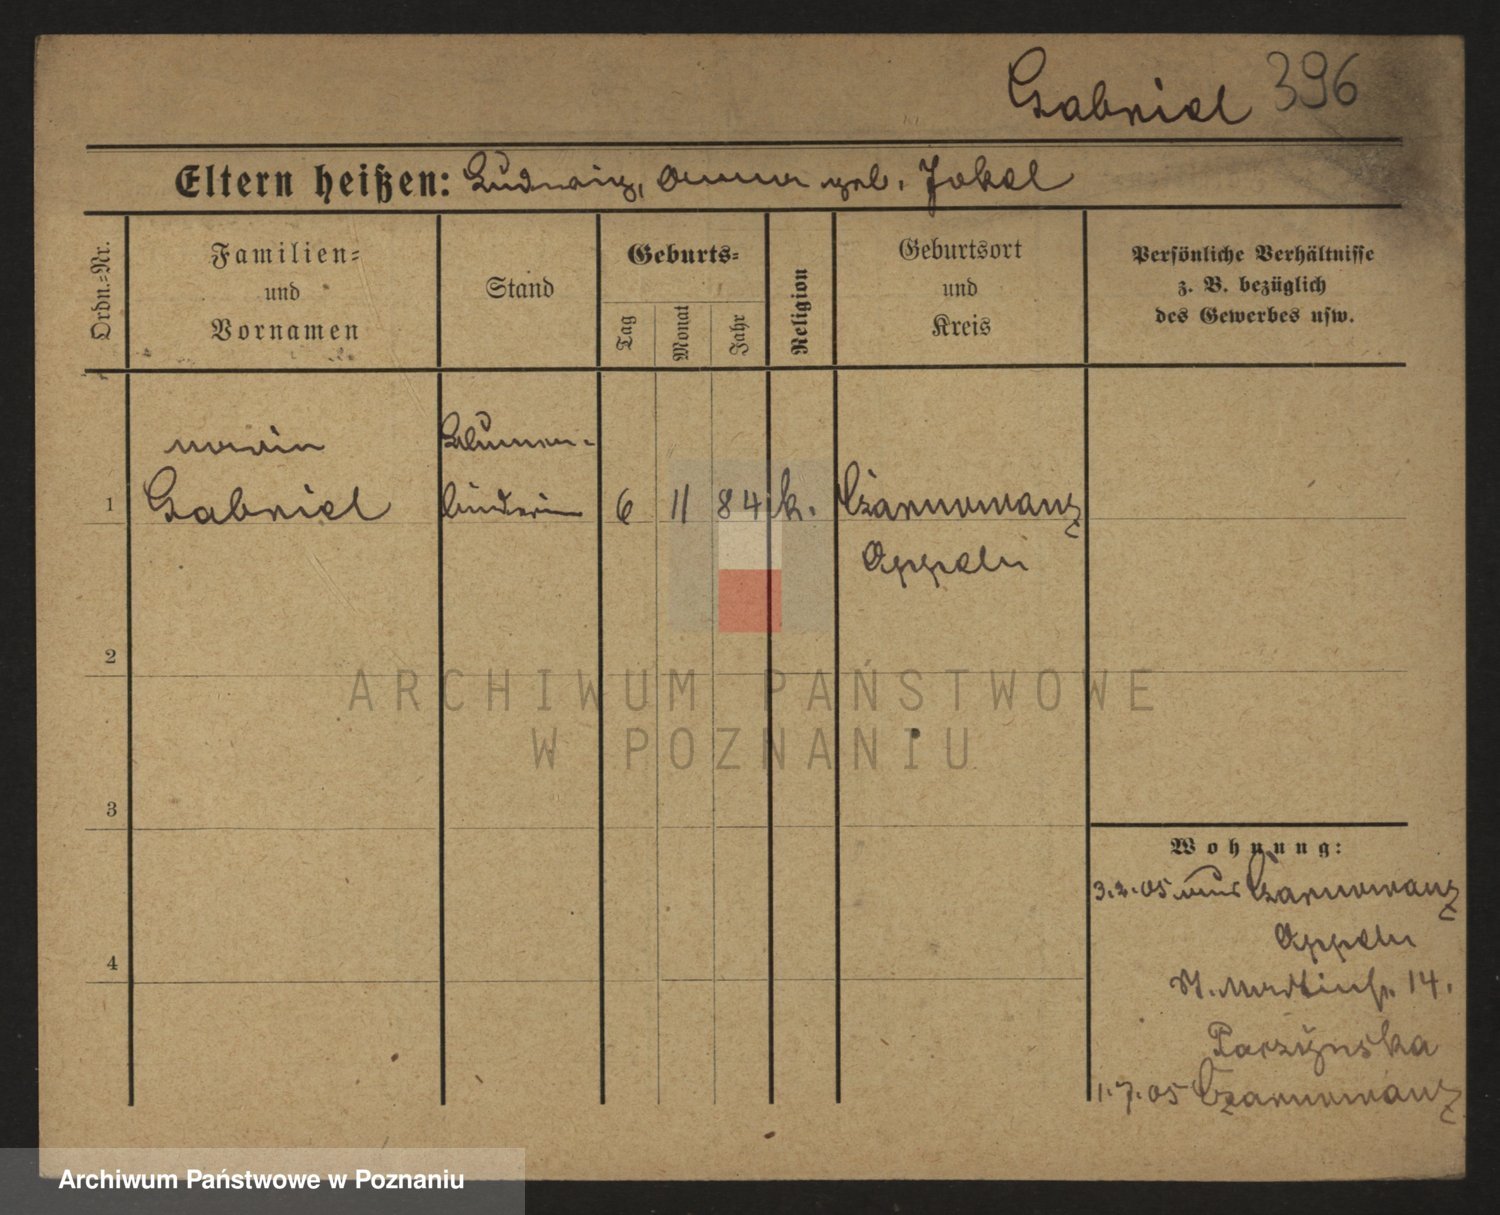 Gabriel 396
Eltern heißen: Ludwig, Anna geb. Jokel
Ordn.-Nr.
Familien-
und
Vornamen
Stand
Geburts-
Tag
Monat
Jahr
Religion
Geburtsort
und
Kreis
Persönliche Verhältnisse
z. B. bezüglich
des Gewerbes usw.
Maria
Blumen-
1 Gabriel binderin 6 11 84 k. Czarnowanz
Oppeln
2
3
4
Wohnung:
3.2.05 aus Czarnowanz
Oppeln
St. Martinstr. 14.
Parzynska
1.7.05 Czarnowanz
ARCHIWUM PAŃSTWOWE
W POZNANIU
Archiwum Państwowe w Poznaniu